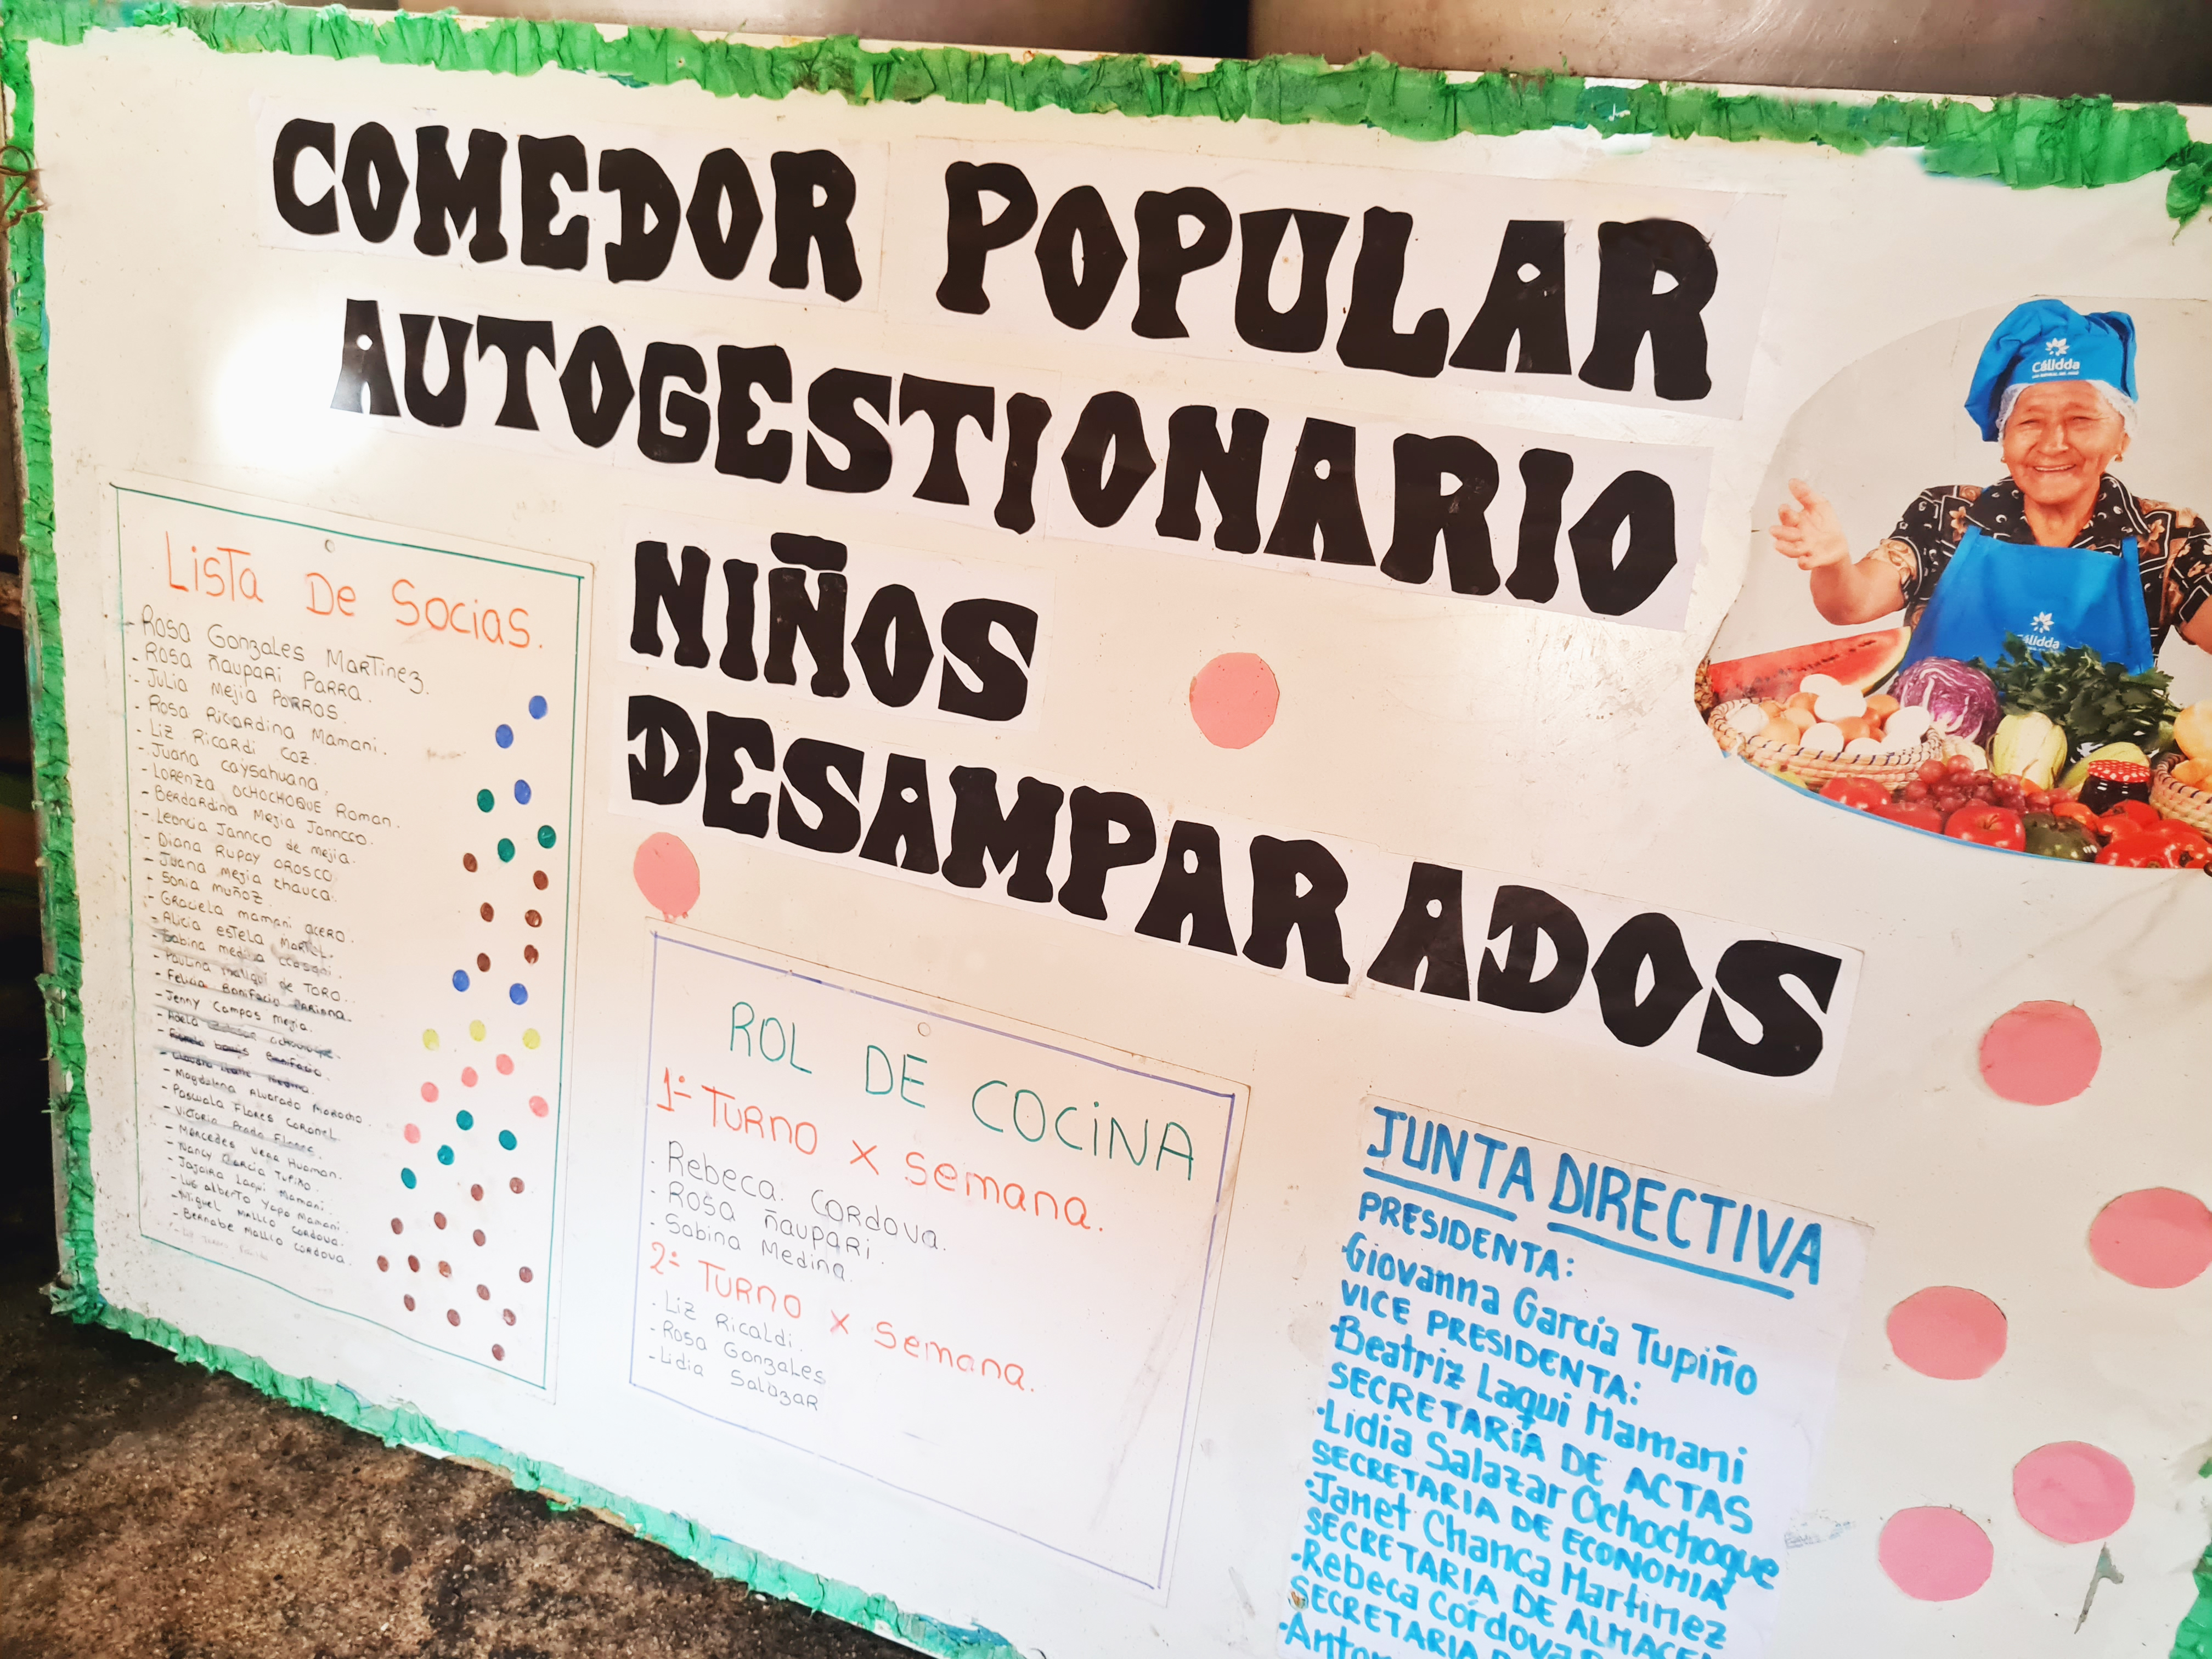 COMEDOR POPULAR
AUTOGESTIONARIO
NIÑOS
DESAMPARADOS
Cálidda
Cálidda
Lista De Socias.
- Rosa Gonzales Martinez.
- Rosa Ñaupari Parra.
- Julia Mejia Porras.
- Rosa Ricardina Mamani.
- Liz Ricardi Coz.
- Juana Caysahuana.
- Lorenza Ochochoque Roman.
- Berdardina Mejia Janncco.
- Leoncia Jannco de Mejia.
- Diana Rupay Orosco
- Juana Mejia Chauca.
- Sonia Muñoz.
- Graciela Mamani Acero.
- Alicia Estela
- Sabina Medina
- Paulina de Toro.
- Felicia Bonifacio
- Jenny Campos Mejia.
- Adela
- Bonifacio
- Magdalena Alvarado
- Pascuala Flores Coronel.
- Victoria Prado Flores.
- Mercedes Vera Huaman.
- Nancy Garcia Tupiño.
- Laqui Mamani.
- Luis Alberto Yapo Mamani.
- Miguel Mallco Cordova.
- Bernabe Mallco Cordova.
ROL DE COCINA
1- TURNO X Semana.
- Rebeca. Cordova.
- Rosa Ñaupari.
- Sabina Medina.
2- TURNO X Semana.
- Liz Ricaldi.
- Rosa Gonzales
- Lidia Salazar
JUNTA DIRECTIVA
PRESIDENTA:
·Giovanna García Tupiño
VICE PRESIDENTA:
·Beatriz Laqui Mamani
SECRETARÍA DE ACTAS
·Lidia Salazar Ochochoque
SECRETARIA DE ECONOMIA
·Janet Chanca Martinez
SECRETARIA DE ALMACEN
·Rebeca Córdova
SECRETARIA